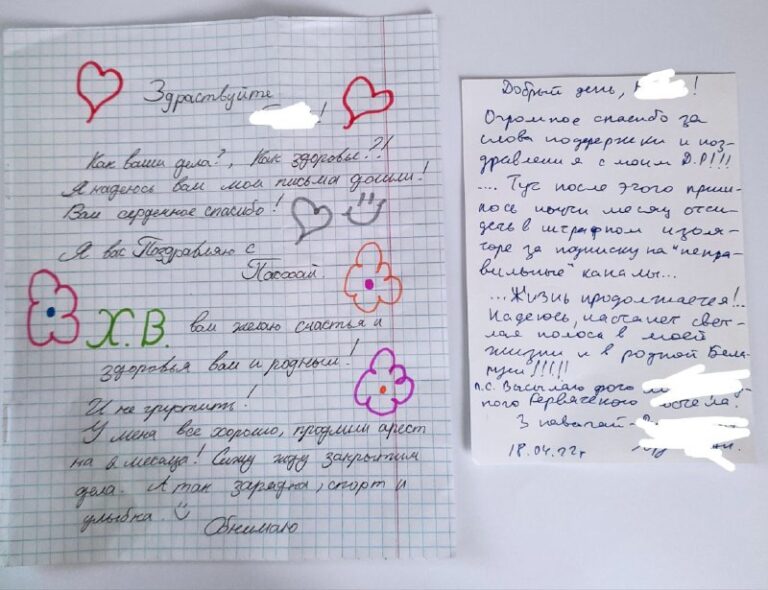 Здраствуйте
!
Как ваши дела?, Как здоровье?!
Я надеюсь вам мои письма дошли!
Вам серденное спасибо!
Я вас Поздравляю с
Пасхой.
Х.В. вам желаю счастья и
здоровья вам и родным!
И не груртить!
У меня все хорошо, продлили арест
на 2 месяца! Сижу жду закрытия
дела. А так зарядка, спорт и
улыбка.
Обнимаю
Добрый день, !
Огромное спасибо за
слова поддержки и поз-
дравления с моим Д.Р!!!
.... Тут после этого приш-
лось почти месяц отси-
деть в штрафном изоля-
торе за подписку на "непра-
вильные" каналы...
...Жизнь продолжается!..
Надеюсь, настанет свет-
лая полоса в моей
жизни и в родной Бела-
руси!!!!!
п.с. Высылаю фото
ного Гервяческого костела.
З павагай
18.04.22г